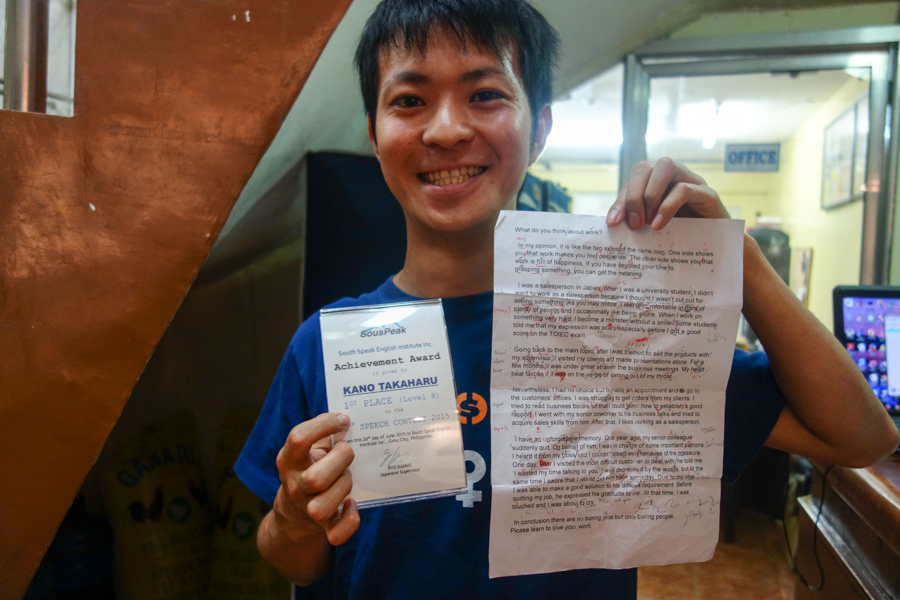 OFFICE
SouSPeak
South Speak English Institute Inc.
Achievement Award
is given to
KANO TAKAHARU
1ST PLACE (Level 8)
in the
SPEECH CONTEST 2015
Given this 26th day of June 2015 in South Speak English
Institute Inc., Cebu City, Philippines.
Japanese Supervisor
What do you think about work?
In my opinion, it is like the two sides of the same coin. One side shows
you that work makes you feel desperate. The other side shows you that
work is full of happiness. If you have devoted your time to
grasping something, you can get the meaning.
I was a salesperson in Japan. When I was a university student, I didn't
want to work as a salesperson because I thought I wasn't cut out for
selling something. As you may notice, I feel uncomfortable in front of
plenty of people and I occasionally like being alone. When I work on
something very hard, I become a monster without a smile! Some students
told me that my expression was scary especially before I got a good
score on the TOIEC exam.
Going back to the main topic, after I was trained to sell the products with
my supervisor, I visited my clients and made presentations alone. For a
few months, I was under great strain in the business meetings. My heart
beat fast as if I was on the verge of coming out of my throat.
Nevertheless, I had no choice but to make an appointment and go to
the customers' offices. I was struggle to get orders from my clients. I
tried to read business books so that I could learn how to establish a good
rapport. I went with my senior coworker to his business talks and tried to
acquire sales skills from him. After that, I likes working as a salesperson.
I have an unforgettable memory. One year ago, my senior colleague
suddenly quit. On behalf of him, I was in charge of some important patrons.
I heard it from my boss and I couldn't sleep well because of the pressure.
One day, I visited the most difficult customer to deal with. He told me
I wasted my time talking to you. I was depressed by the words, but at the
same time I swore that I would someday. Due to my view, I
was able to make a good solution to his difficult requirement. Before
quitting my job, he expressed his gratitude to me. At that time, I was
touched and I was about to cry.
In conclusion there are no boring jobs but only boring people.
Please learn to love your work.